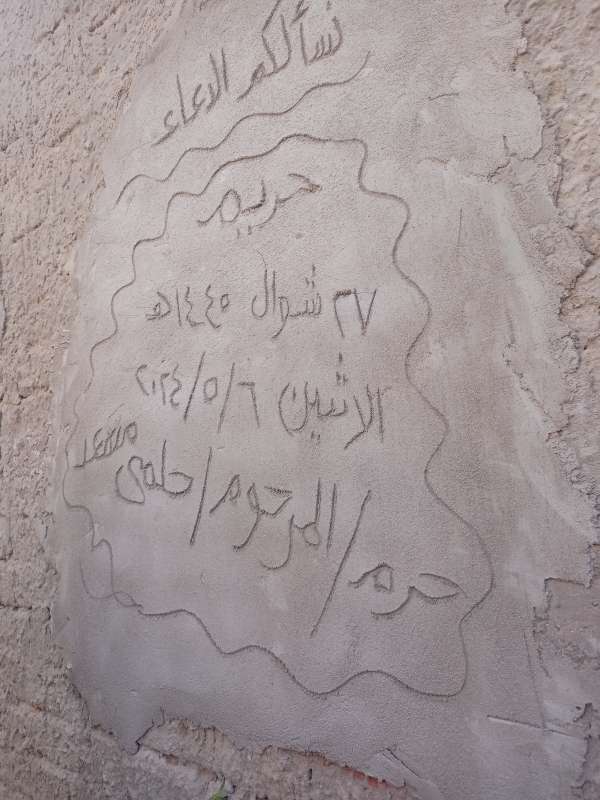 نسألكم الدعاء
حريم
٢٧ شوال ١٤٤٥هـ
الاثنين ٢٠٢٤/٥/٦
حرم / المرحوم / حلمى مسعد